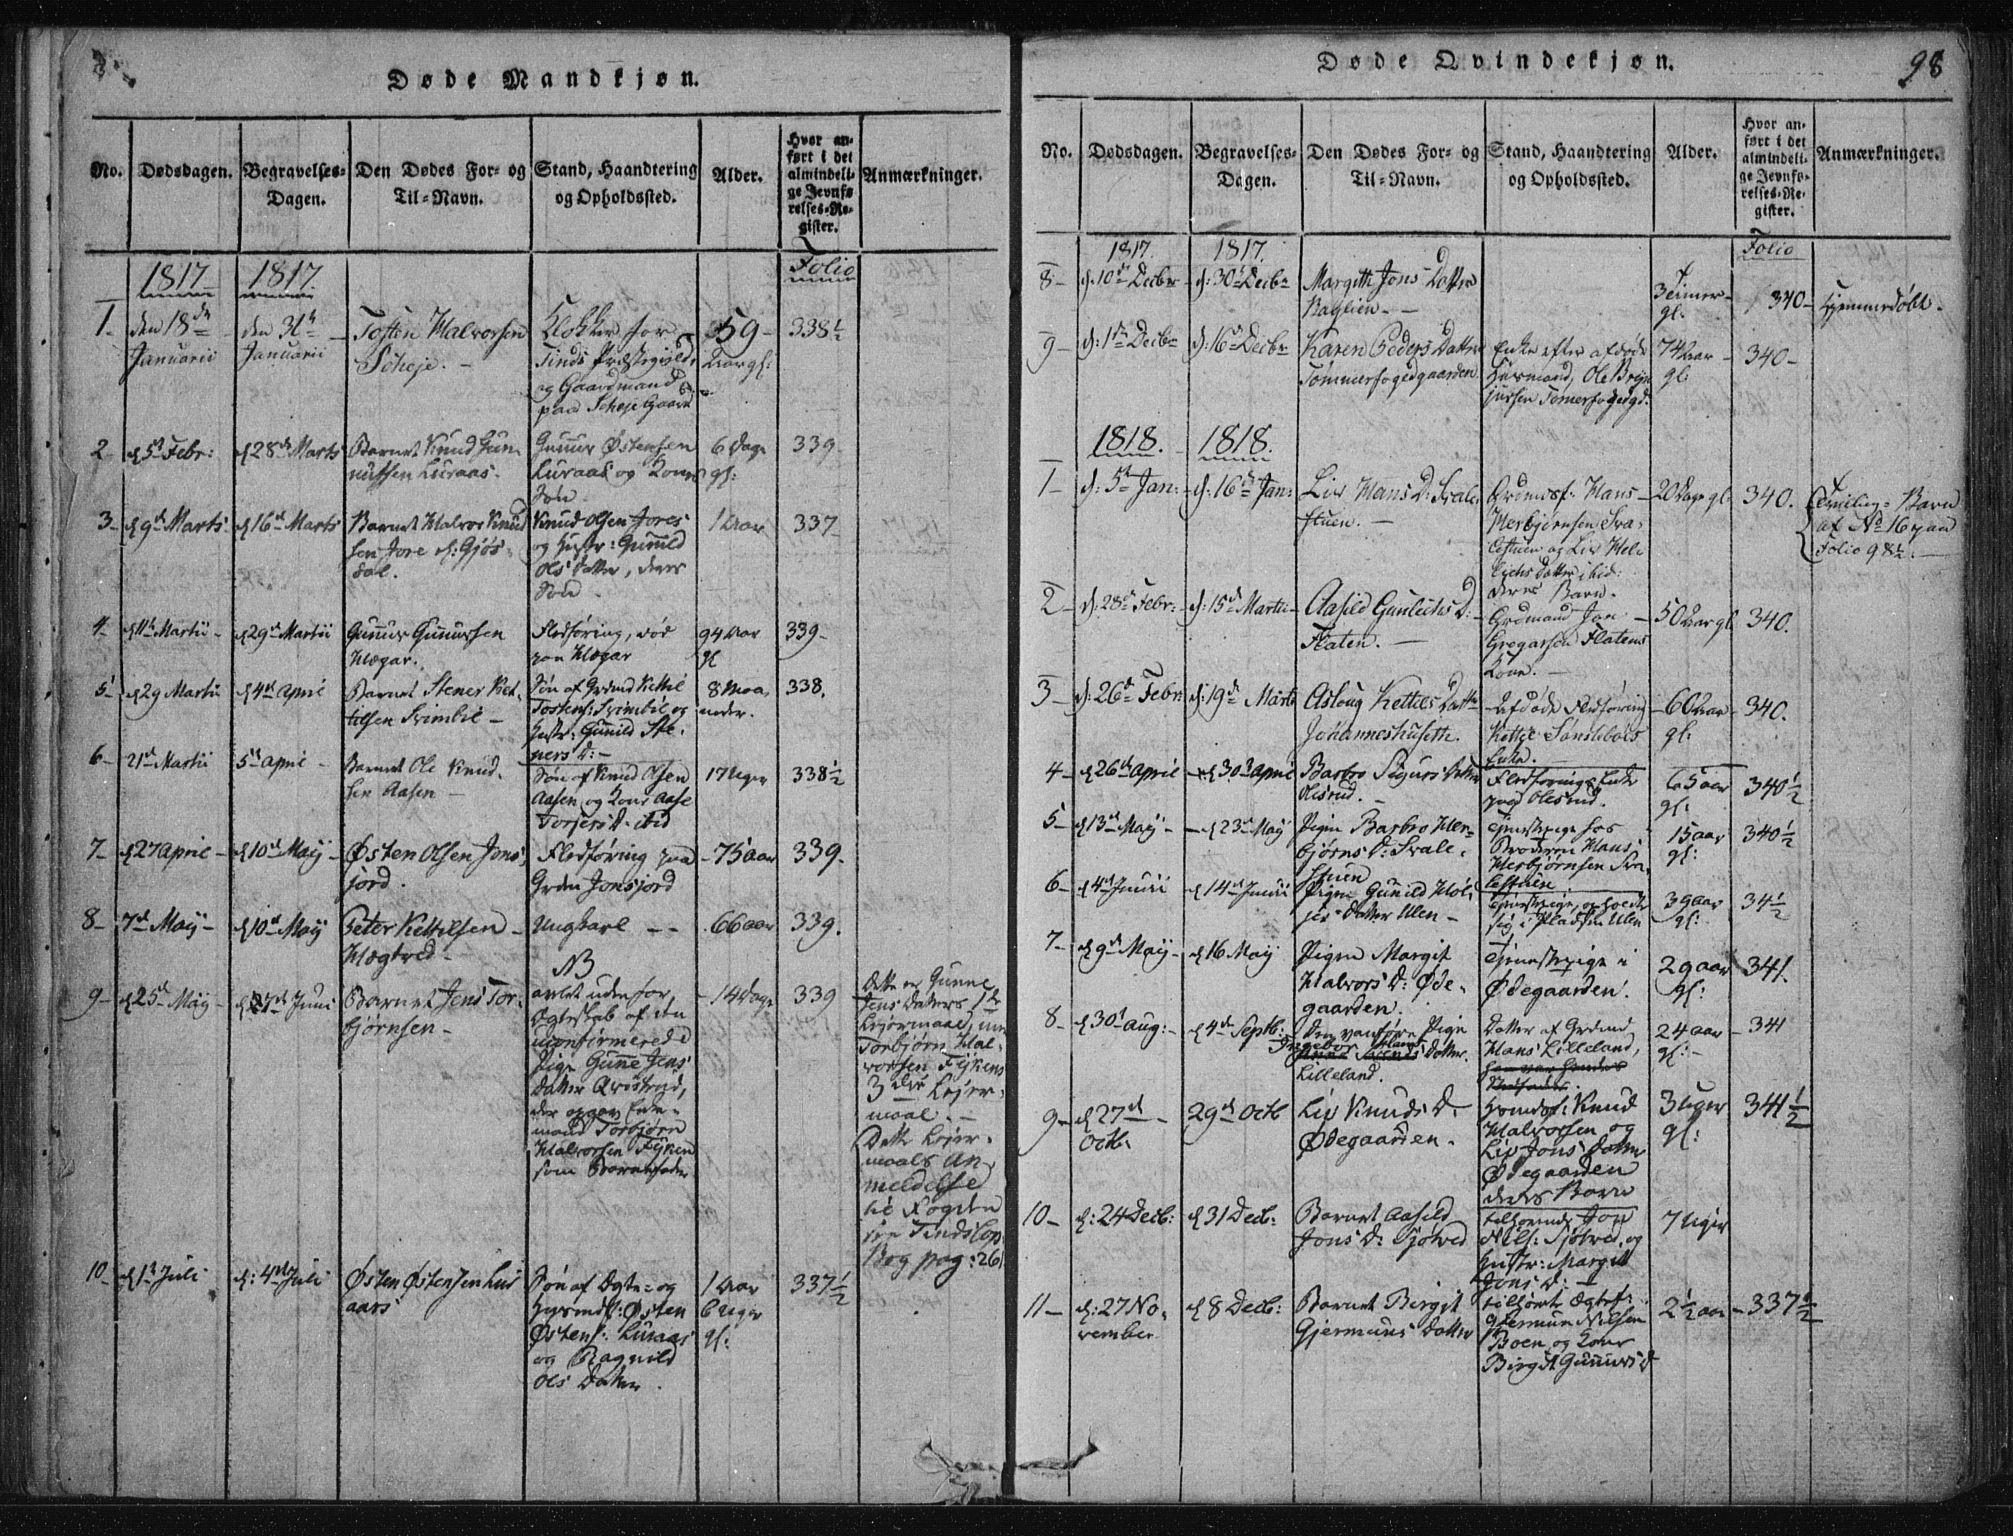 Døde Mandkjøn.
No.
Dødsdagen.
Begravelses-
Dagen.
Den Dødes For- og
Til-Navn.
Stand, Haandtering
og Opholdssted.
Alder.
Hvor an-
ført i det
almindeli-
ge Jevnfø-
relses-Re-
gister.
Anmærkninger.
1817
1817.
Folio
1-
den 18de
Januarii
den 31te
Januarii
Tosten Halvorsen
Scheje.-
Klokker for
Tinds Præstegield,
og Gaardmand
paa Scheje Gaard
59-
Aar gl:
338½
2-
d 5t Febr:
d 28de Marts
Barnet Knud Gun-
nulfsen Luraas.
Gunnur Østensen
Luraas og Kones
Søn
6 Dage
gl:
339-
3-
d 9de Marts
d 16de Marts
Barnet Halvor Knud
sen Jore d: Gjøs-
dal.
Knud Olsen Jores
og Hustr: Gunild
Ols Datter, deres
Søn-
1 Aar
337-
4-
d 11te Martii-
d 29de Martii
Gunnur Gunnursen
Hægar.
Fledføring, død
paa Hægar
94 Aar
gl
339-
5-
d 29 Martii
d 4de April
Barnet Stener Ket-
tilsen Svimbil-
Søn af Grdmd Kettil
Tostens: Svimbil og
Hustr: Gunild Ste-
ners D:-
8 Maa
neder.
338.
6-
21de Martii
5te April-
Barnet Ole Knud-
sen Aasen-
Søn af Knud Olsen
Aasen og Kone Aase
Torjers D. ibid
17 Uger
338½
7-
d 27 April-
d 10de Maij-
Østen Olsen Jons
jord.
Fledføring paa
Grden Jonsjord
-75 aar
339.
8-
7de Maij-
d 10de Maij
Peter Kettilsen-
Hægtved-
Ungkarl--
66 aar
339.
9-
d 25de Maij-
d 7de Juni
Barnet Jens Tor-
bjørnsen-
NB
avlet uden for
Ægteskab af den
uconfirmerede
Pige Gunne Jens
Datter Qvistrud,
der opgav Enke-
mand Torbjørn
Halvorsen Fijken
som Barnefader
-14 Dage
339
Dette er Gunne
Jens Datters 1te
Lejermaal, men
Torbjørn Hal-
vorsen Fijkens
3die Lejer-
maal.-
Dette Lejer-
maals An-
meldelse
til Fogden
see Tinds Cop.
Bog pag: 26
10-
d 1te Juli
d: 4de Juli
Østen Østensen Lur
aars
Søn af Ægte- og
Husmdf: Østen
Østens: Luraas
og Ragnild
Ols Datter.
1 Aar
6 Uger
gl:
337½
Døde Qvindekjøn.
98
No.
Dødsdagen.
Begravelses-
Dagen.
Den Dødes For- og
Til-Navn.
Stand, Haandtering
og Opholdssted.
Alder.
Hvor an-
ført i det
almindeli-
ge Jevnfø-
relses-Re-
gister.
Anmærkninger.
1817.
1817.
Folio
8-
d: 10de Decbr
d: 30te Decbr
Margith Jons Datter
Baglien--
3 timer-
gl.
340-
Hjemmedøbt-
9-
d: 1te Decbr
d: 16de Decbr
Karen Peders Datter
Tømmerfogedgaarden
Enke efter afdøde
Husmand, Ole Bryn
julfsen Tømerfogedgd.
74 Aar-
gl:
340-
1818.
1818.
1-
d: 5te Jan:
d: 16de Jan:
Liv Hans D: Svale-
stuen.-
Grdmdsf: Hans-
Herbjørnsen Sva-
lestuen og Liv Hel-
lichs Datter ibid:
deres Barn-
20 Dage gl.
340.
Tvilling-Barn
af No 16 paa
Folio 98½.-
2-
d: 28de Febr:
d: 15de Martii
Aasild Gunlichs D:
Flaten.-
Grdmand Jon
Gregarsen Flatens
Kone.-
50 Aar gl.
340.
3-
d: 26de Febr:
d: 19de Marts
Aslaug Kettils Datter
Johanneshuseth.
Afdøde Fledføring
Kettil Sønsteböes
Enke.
60 Aar-
gl:
340.
4-
d 26de April
d 30te April
Barbro Sigurs Datter
Olesrud.-
Fledførings Enke
paa Olesrud.
65 aar
gl:
340½
5-
d 13de Maij-
d 23de Maij
Pigen Barbro Her-
bjørns D: Svale-
stuen
Tjenestepige hos
Broderen Hans
Herbjørnsen Sva-
lestuen
15 aar
gl:
340½
6-
d 4de Junii
d 14de Junii
Pigen Gunild Hol-
jer-Datter Ulen-
Tjenestepige, opholdt
sig i Pladsen Ulen
39 aar
gl:
34½
7-
d 9de Maij-
d 16 Maij
Pigen Margit
Halvors D: Øde-
gaarden.
Tjenestepige i
Ødegaarden.
29 aar
gl:
341.
8-
d 30te Aug:-
d 4de Septb:
Den vanføre Pige
Ingebor Hans
Datter.
Lilleland.
Datter af Grdmd
Hans Lilleland,
24 aar-
gl:-
341
9-
d 27de
Octb.
29de Octb
Liv Knuds D.
Ødegaarden.
Husmdsf: Knud
Halvorsen og
Liv Jons Datter
Ødegaarden
deres Barn
3 Uger
gl:
341½
10-
d: 24 Decb:
d 31 Decb:
Barnet Aasild
Jons D: Sjötved
tilhørende Jon
Nils: Sjötved, og
Hustr: Margit
Jons D:-
7 Uger
11-
d: 27 No-
vember
d 8 Decb:
Barnet Birgit
Gjermuns Datter
tilhørte Ægtef:
Gjermun Nilsen
Boen og Kone
Birgit Gunnurs D
2½ aar
337½